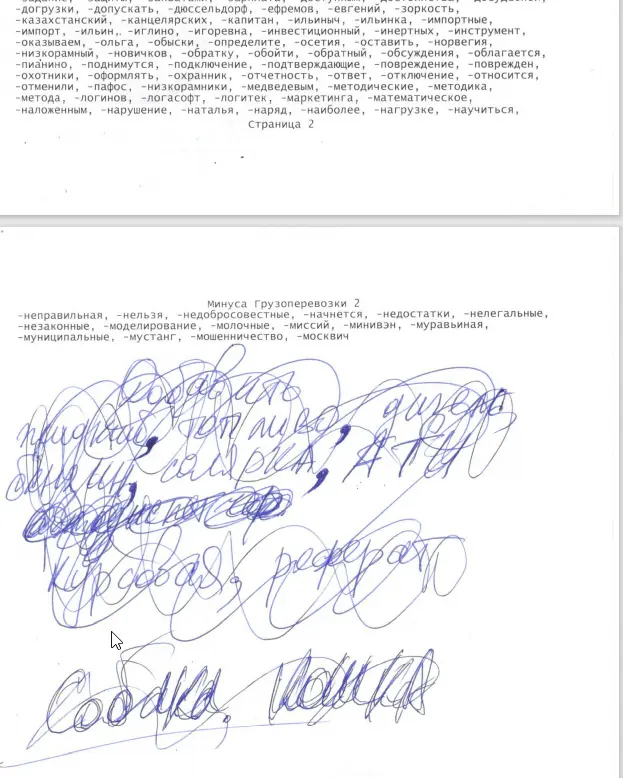 -догрузки, -допускать, -дюссельдорф, -ефремов, -евгений, -зоркость,
-казахстанский, -канцелярских, -капитан, -ильиныч, -ильинка, -импортные,
-импорт, -ильин,. -иглино, -игоревна, -инвестиционный, -инертных, -инструмент,
-оказываем, -ольга, -обыски, -определите, -осетия, -оставить, -норвегия,
-низкорамный, -новичков, -обратку, -обойти, -обратный, -обсуждения, -облагается,
-пианино, -поднимутся, -подключение, -подтверждающие, -повреждение, -поврежден,
-охотники, -оформлять, -охранник, -отчетность, -ответ, -отключение, -относится,
-отменили, -пафос, -низкорамники, -медведевым, -методические, -методика,
-метода, -логинов, -логасофт, -логитек, -маркетинга, -математическое,
-наложенным, -нарушение, -наталья, -наряд, -наиболее, -нагрузке, -научиться,
Страница 2
Минуса Грузоперевозки 2
-неправильная, -нельзя, -недобросовестные, -начнется, -недостатки, -нелегальные,
-незаконные, -моделирование, -молочные, -миссий, -минивэн, -муравьиная,
-муниципальные, -мустанг, -мошенничество, -москвич
Добавить
топливо, дизель
бензин, солярка, АТИ
курсовая, реферат
Собака, кошка